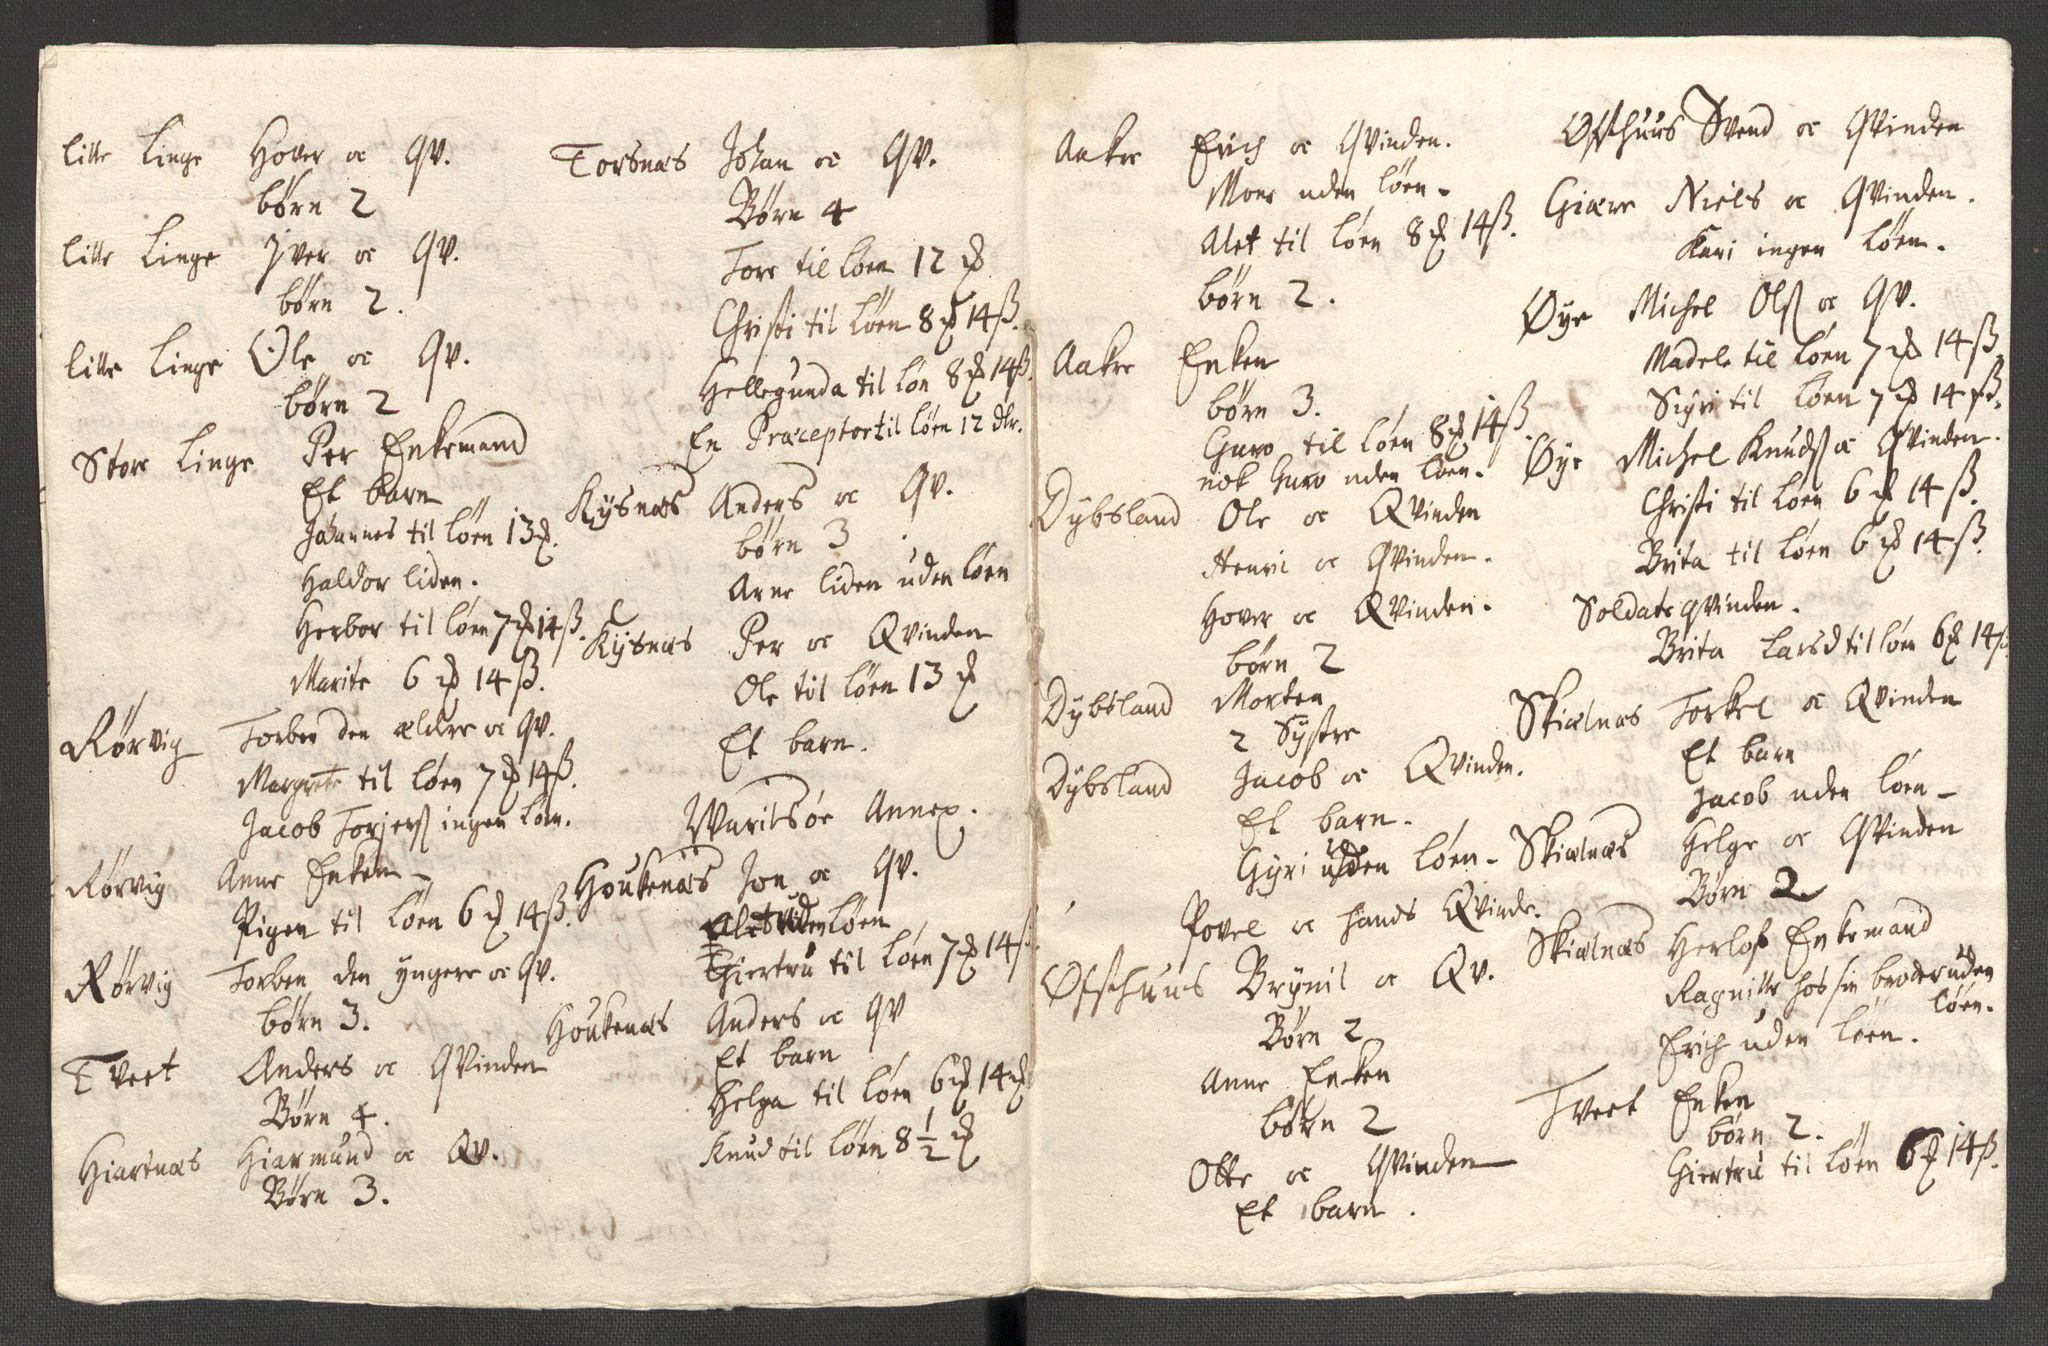 Litle Linge Hover oc Qv.
børn 2
Litle Linge Iver oc Qv.
børn 2.
Litle Linge Ole oc Qv.
børn 2
Store Linge Per Enkemand
Et barn
Johannes til Løen 13 d.
Haldor liden.
Herbor til Løen 7 d 14 ß.
Marite 6 d 14 ß.
Rørvig Torben den ældre oc Qv.
Margrete til Løen 7 d 14 ß.
Jacob Torjerß ingen Løn.
Rørvig Anne Enken
Pigen til Løen 6 d 14 ß.
Rørvig Torben den yngere oc Qv.
børn 3.
Tveet Anders oc Qvinden
Børn 4.
Hiartnæs Hiarmund oc Qv.
Børn 3.
Torsnæs Johan oc Qv.
Børn 4
Tore til Løen 12 d
Christi til Løen 8 d 14 ß.
Hellegunda til Løn 8 d 14 ß.
En Præceptor til Løen 12 dlr.
Kysnæs Anders oc Qv.
børn 3
Arne liden uden Løen
Kysnæs Per oc Qvinden
Ole til Løen 13 d
Et barn.
Waritsøe Annex.
Houkenæs Jon oc Qv.
Alet uden Løen
Giertru til Løen 7 d 14 ß.
Houkenæs Anders oc Qv
Et barn
Helga til Løen 6 d 14 d
Knud til Løen 8 1/2 d
Aakre Erich oc Qvinden.
Moer uden Løen
Alet til Løen 8 d 14 ß.
børn 2.
Aakre Enken
børn 3.
Guro til Løen 8 d 14 ß.
nok Guro uden Løen.
Dybsland Ole oc Qvinden
Henric oc Qvinden.
Hover oc Qvinden.
børn 2
Dybsland Morten
2 Systre
Dybsland Jacob oc Qvinden.
Et barn.
Gyri uden Løen
Povel oc hands Qvinde.
Ofsthuus Brynil oc Qv.
Børn 2
Anne Enken
børn 2
Otte oc Qvinden
Et barn.
Ofsthuus Svend oc Qvinden
Giære Niels oc Qvinden.
Kari ingen Løen.
Øye Michel Olß oc Qv.
Madele til Løen 7 d 14 ß
Siyri til Løen 7 d 14 ß.
Øye Michel Knudß oc Qvinden.
Christi til Løen 6 d 14 ß.
Brita til Løen 6 d 14 ß.
Soldate qvinden.
Brita Larsd til Løn 6 d 14 ß
Skiælnæs Torkel oc Qvinden
Et barn
Jacob uden Løen
Skiælnæs Helge oc Qvinden
Børn 2
Skiælnæs Herlof Enkemand
Ragnille hos sin broder uden
Løen.
Erich uden Løen.
Tveet Enken
børn 2.
Giertru til Løen 6 d 14 ß.